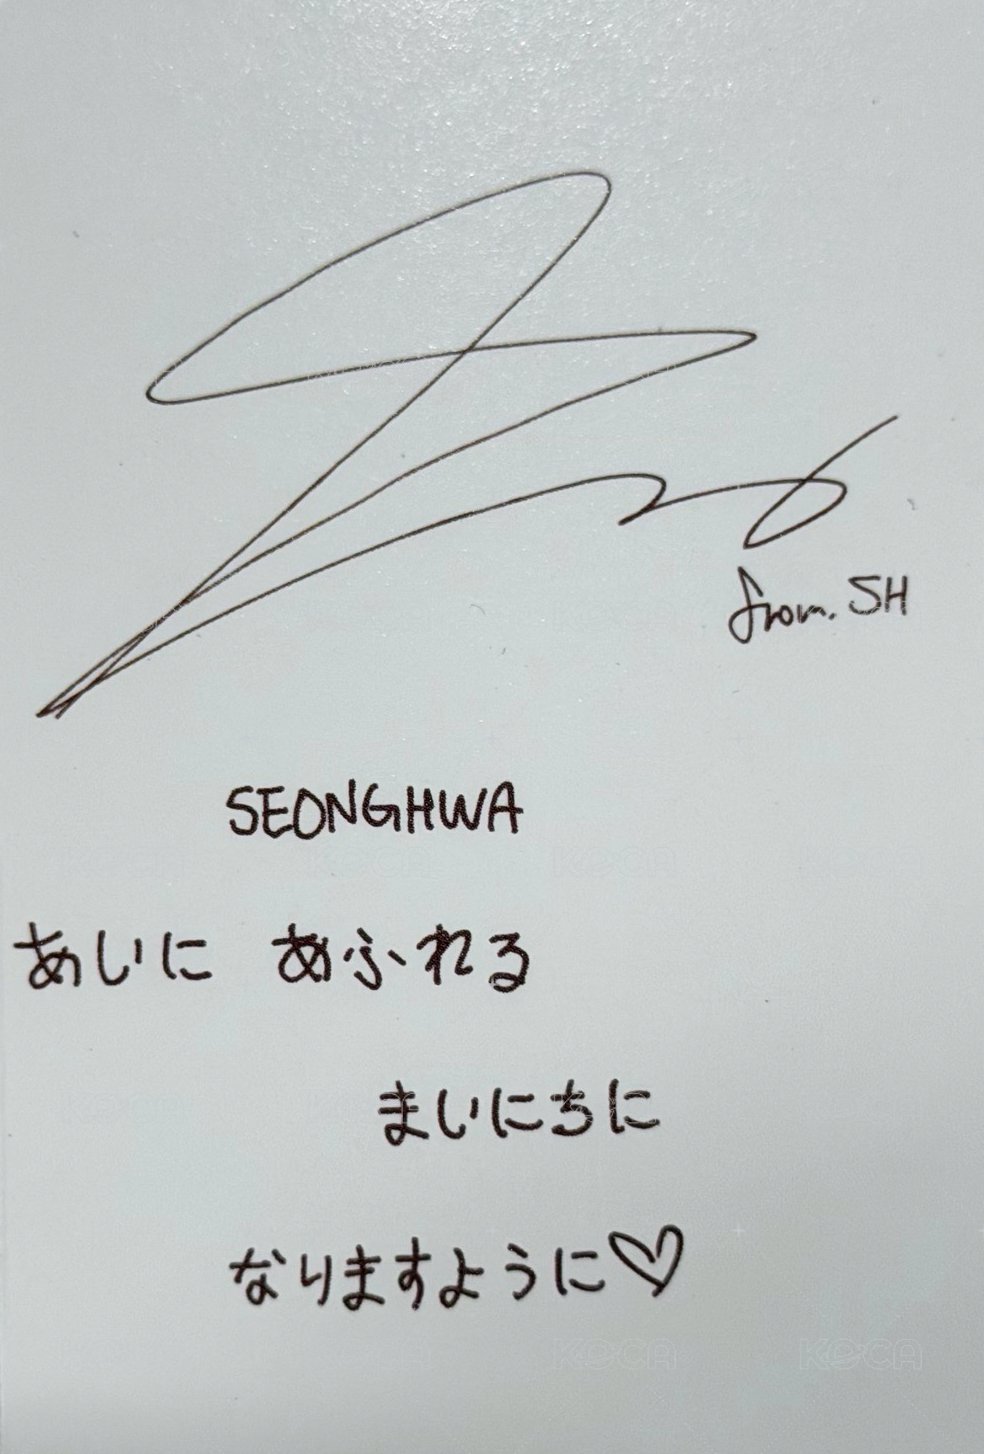 from. SH
SEONGHWA
あいに あふれる
まいにちに
なりますように♡
KOCA
KOCA
KOCA